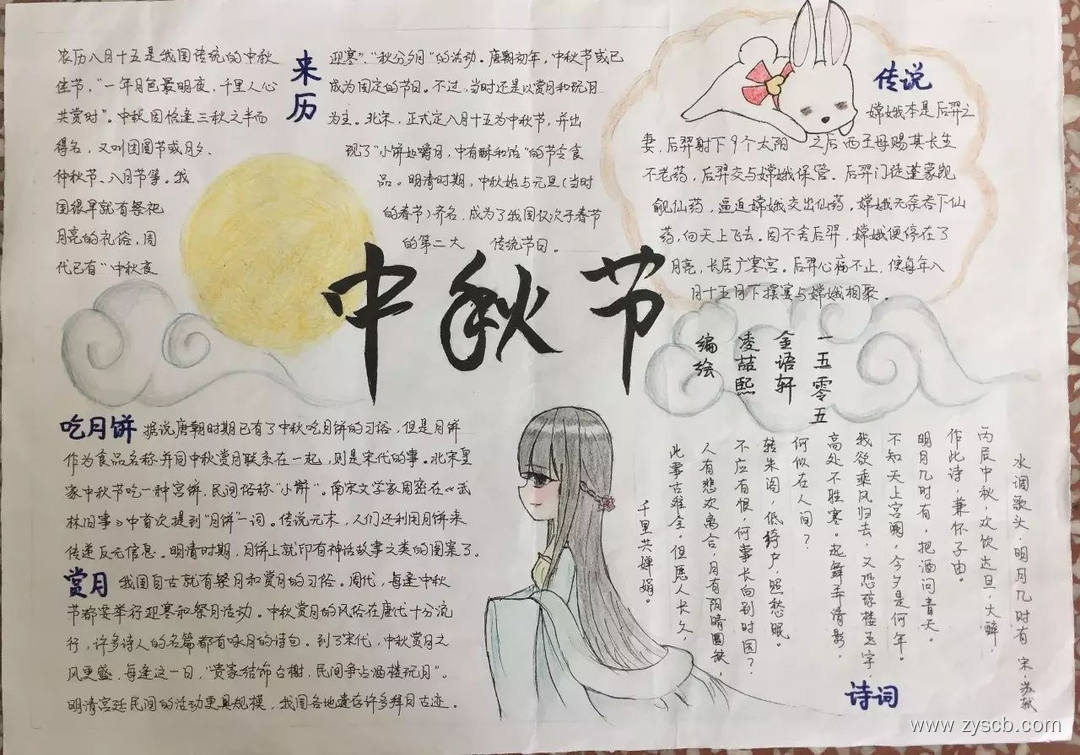 来历
农历八月十五是我国传统的中秋
佳节,“一年月色最明夜,千里人心
共赏时”。中秋因恰逢三秋之半而
得名,又叫团圆节或月夕、
仲秋节、八月节等。我
国很早就有祭祀
月亮的礼俗,周
代已有“中秋夜
迎寒”、“秋分夕月”的活动。唐朝初年,中秋节或已
成为固定的节日。不过,当时还是以赏月和玩月
为主。北宋,正式定八月十五为中秋节,并出
现了“小饼如嚼月,中有酥和饴”的节令食
品。明清时期,中秋始与元旦(当时
的春节)齐名,成为了我国仅次于春节
的第二大 传统节日。
传说
嫦娥本是后羿之
妻,后羿射下9个太阳 之后西王母赐其长生
不老药,后羿交与嫦娥保管。后羿门徒蓬蒙觊
觎仙药,逼迫嫦娥交出仙药,嫦娥无奈吞下仙
药,向天上飞去。因不舍后羿,嫦娥便停在了
月亮,长居广寒宫。后羿心痛不止,便每年八
月十五月下摆宴与嫦娥相聚。
中秋节
一五零五
金语轩
凌喆熙
编绘
吃月饼
据说唐朝时期已有了中秋吃月饼的习俗,但是月饼
作为食品名称并同中秋赏月联系在一起,则是宋代的事。北宋皇
家中秋节吃一种宫饼,民间俗称“小饼”。南宋文学家周密在《武
林旧事》中首次提到“月饼”一词。传说元末,人们还利用月饼来
传递反元信息。明清时期,月饼上就印有神话故事之类的图案了。
赏月
我国自古就有祭月和赏月的习俗。周代,每逢中秋
节都要举行迎寒和祭月活动。中秋赏月的风俗在唐代十分流
行,许多诗人的名篇都有咏月的诗句。到了宋代,中秋赏月之
风更盛,每逢这一日,“贵家结饰台榭,民间争占酒楼玩月”。
明清宫廷民间的活动更具规模,我国各地遗存许多拜月古迹。
诗词
水调歌头·明月几时有 宋·苏轼
丙辰中秋,欢饮达旦,大醉,
作此诗,兼怀子由。
明月几时有,把酒问青天。
不知天上宫阙,今夕是何年。
我欲乘风归去,又恐琼楼玉宇,
高处不胜寒。起舞弄清影,
何似在人间?
转朱阁,低绮户,照愁眠。
不应有恨,何事长向别时圆?
人有悲欢离合,月有阴晴圆缺,
此事古难全,但愿人长久,
千里共婵娟。
www.zyscb.com